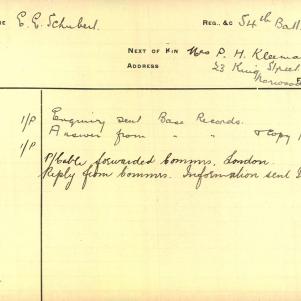 E. E. Schubert.
REG., &C 54th Batt
NEXT OF KIN Mrs P. H. Kleeman
ADDRESS 23 King Street
Norwood
1/P Enquiry sent Base Records.
Answer from " " & Copy
1/P
P/Cable forwarded Commrs. London.
Reply from Commrs. Information sent